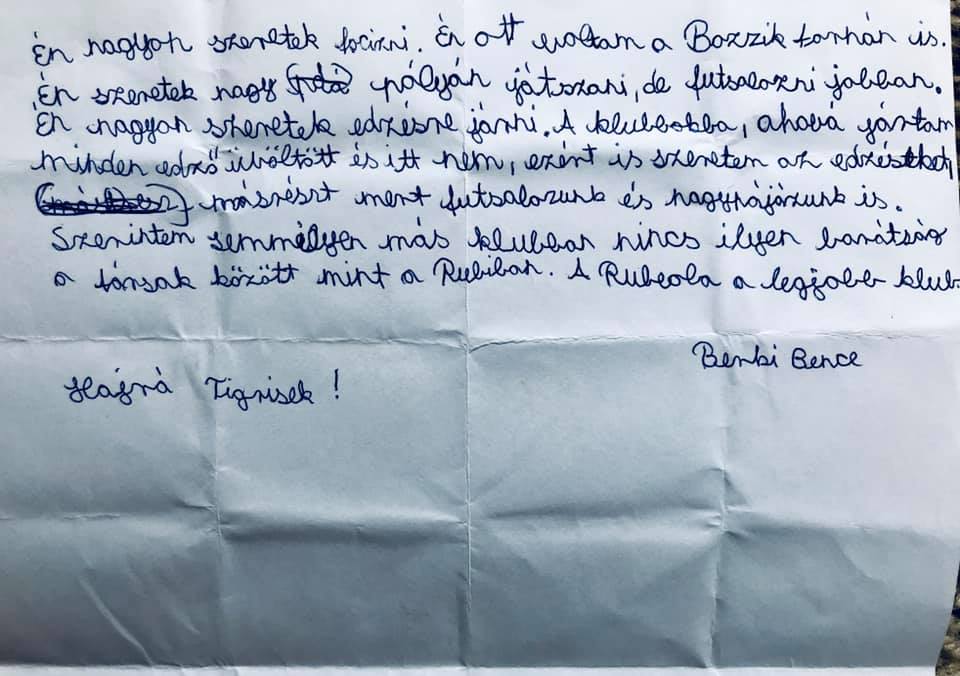 Én nagyon szeretek focizni. Én ott voltam a Bozzik tornán is.
Én szeretek nagy pályán játszani, de futsalozni jobban.
Én nagyon szeretek edzésre járni. A klubbobba, ahová jártam
minden edző üvöltött és itt nem, ezért is szeretem az edzéseket,
másrészt mert futsalozunk és nagypájázunk is.
Szerintem semmélyen más klubban nincs ilyen barátság
a társak között mint a Rubiban. A Rubeola a legjobb klub.
Benki Bence
Hájrá Tigrisek!